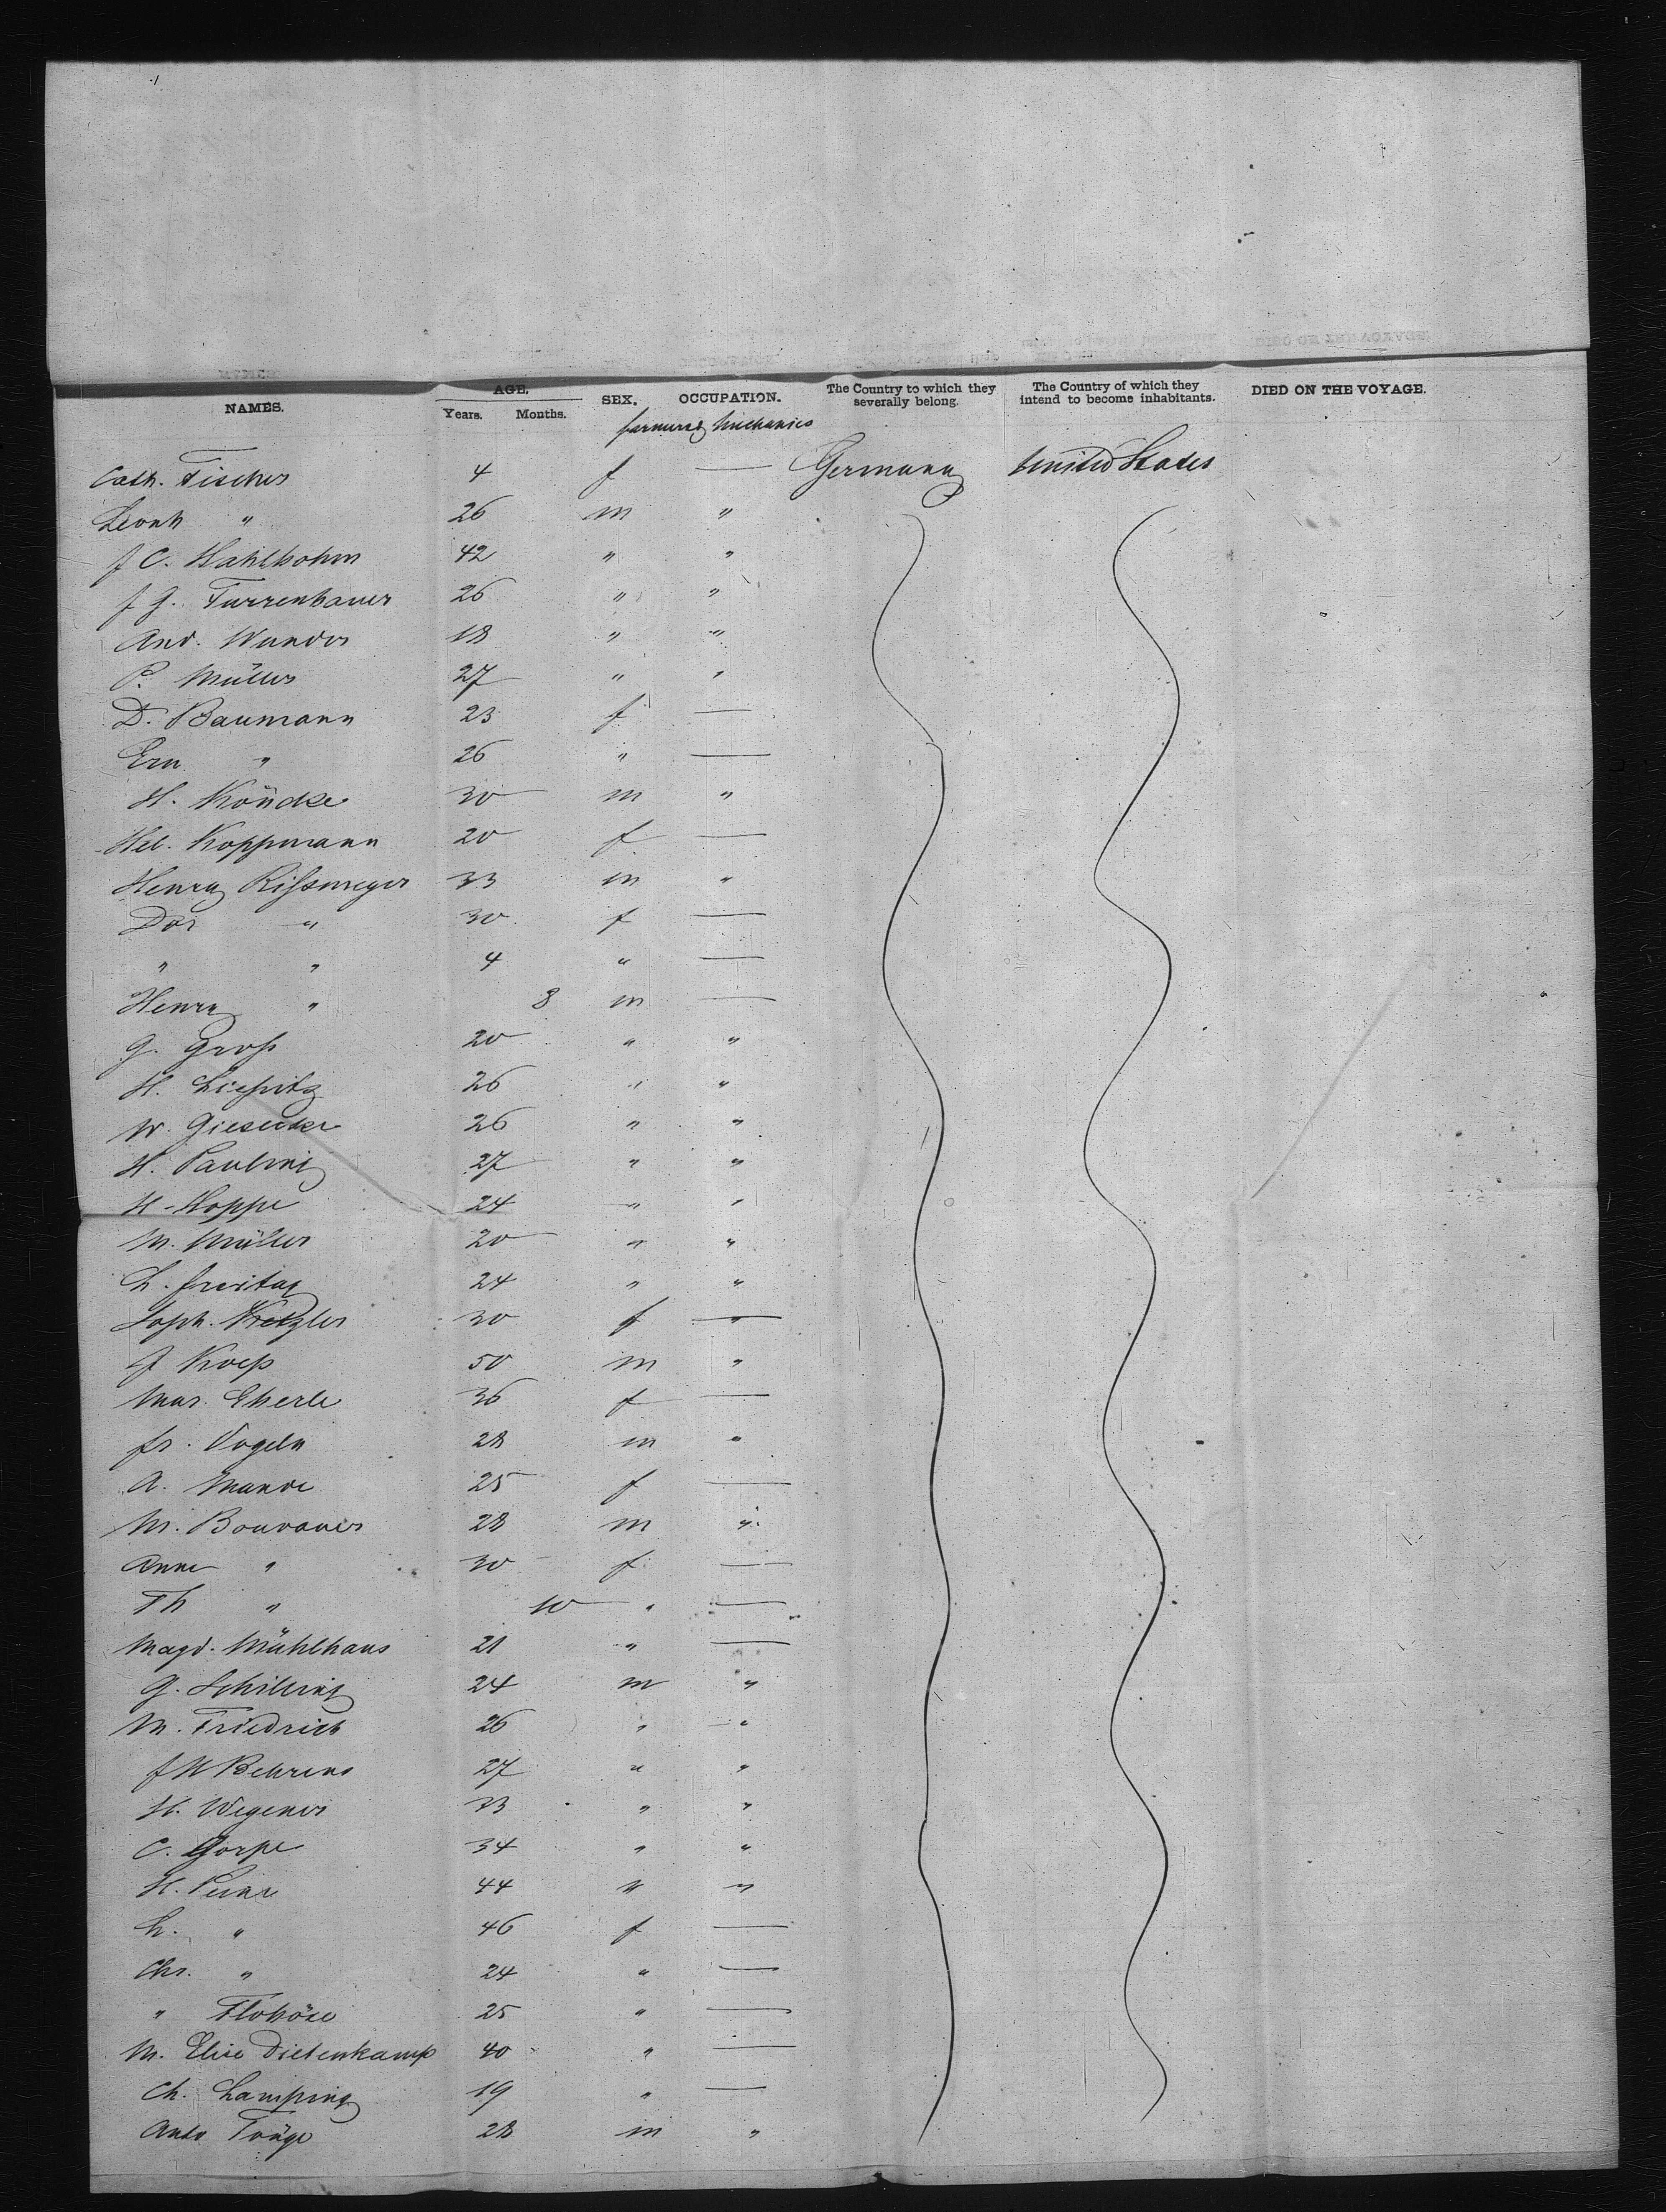 NAMES. AGE. SEX. OCCUPATION. The Country to which they severally belong. The Country of which they intend to become inhabitants. DIED ON THE VOYAGE.
Years. Months.
farmers & Mechanics
Cath. Fischer 4 f — Germany United States
Leonh " 26 m "
J C. Hahlbohm 42 " "
J G. Furrenbauer 26 " "
And. Wunder 18 " "
P. Müller 27 " "
D. Baumann 23 f —
Ern " 26 " —
H. Köndke 30 m "
Hel. Koppmann 20 f —
Henry Rißmeyer 33 m "
Dor " 30 f —
" " 4 " —
Henry " 8 m —
G. Groß 20 " "
H. Ließitz 26 " "
W. Giesecke 26 " "
H. Pauling 27 " "
H. Hoppe 24 " "
M. Müller 20 " "
L. Freitag 24 " "
Soph. Kretzler 30 f —
J Kroeß 50 m "
Mar. Eberle 36 f —
Fr. Vogeln 28 m "
A. Mande 25 f —
M. Bonvauer 28 m "
Anne " 30 f —
Th " 10 " —
Magd. Mühlhaus 21 " —
G. Schilling 24 m "
M. Friedrich 26 " "
J H Behrens 27 " "
H. Wegener 33 " "
C. Gorpe 34 " "
H. Peine 44 " "
L. " 46 f —
Chr. " 24 " —
" Flohöse 25 " —
M. Elise Dietenkamp 40 " —
Ch. Lamping 19 " —
Anto Tröge 28 m "